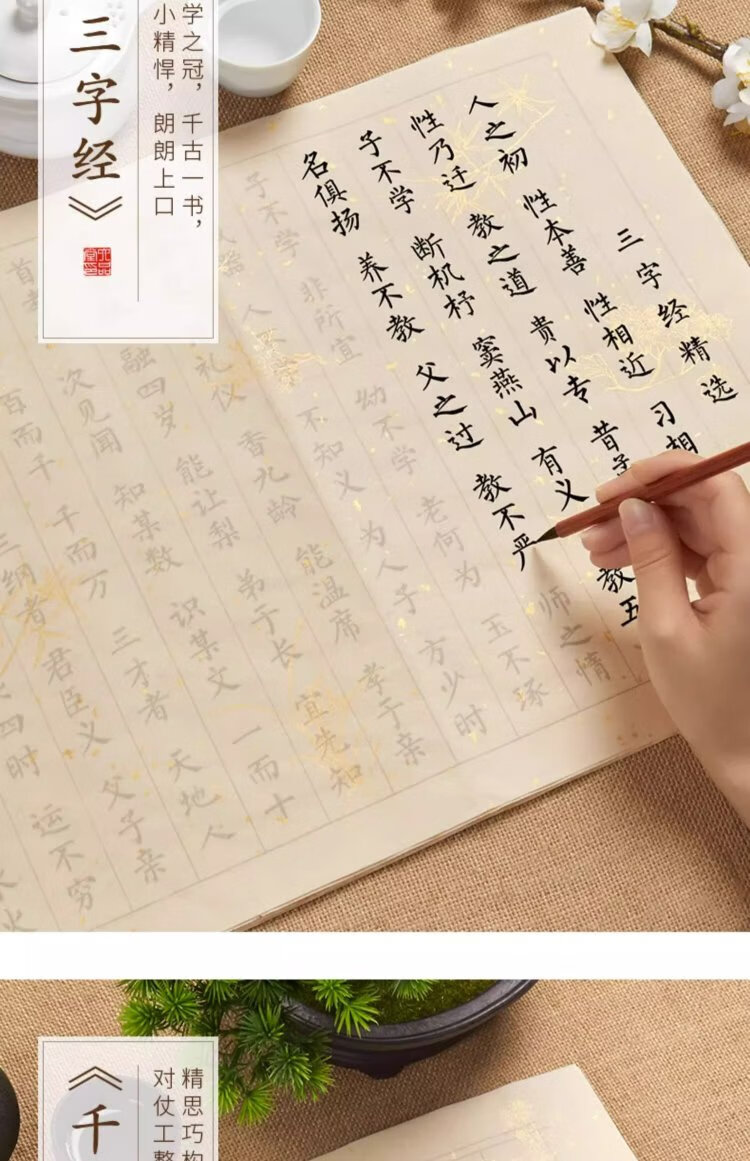 三字经》
学之冠，千古一书，
小精悍，朗朗上口
三字经精选
人之初 性本善 性相近 习相
性乃迁 教之道 贵以专 昔
子不学 断机杼 窦燕山 有义 教五
名俱扬 养不教 父之过 教不严 师之情
子不学 非所宜 幼不学 老何为 玉不琢
人 不知义 为人子 方少时
礼仪 香九龄 能温席 孝于亲
融四岁 能让梨 弟于长 宜先知
首 次见闻 知某数 识某文 一而十
百而千 千而万 三才者 天地人
三纲者 君臣义 父子亲
四时 运不穷
水火
《千
精思巧构
对仗工整